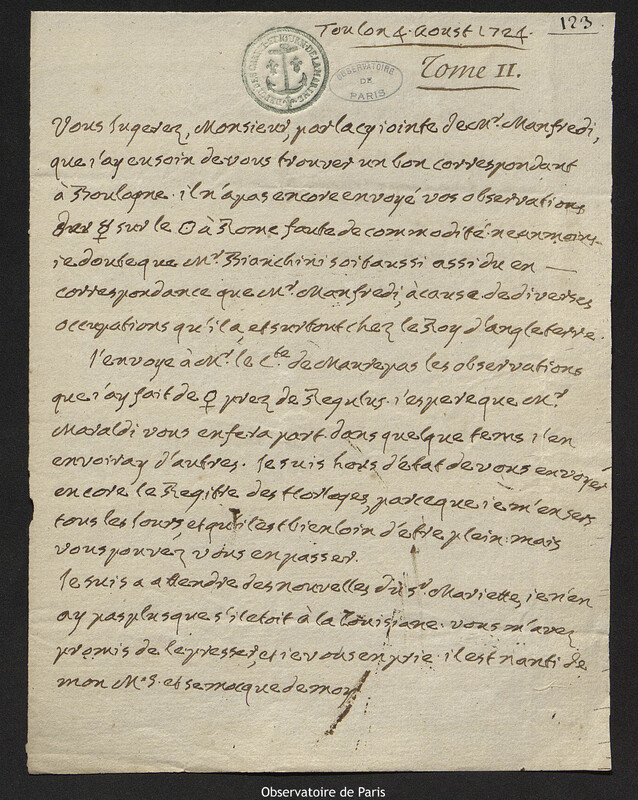 Toulon 4. Aoust 1724.
123
OBSERVATOIRE
DE
PARIS
Tome II.
Vous Iugerez, Monsieur, par la cy iointe de Mr. Manfredi,
que i'ay eu soin de vous trouver un bon correspondant
à Boulogne. il n'a pas encore envoyé vos observations
☿ sur le ☉ à Rome faute de commodité. neanmoins
ie doute que Mr. Bianchini soit aussi assidu en —
correspondance que Mr. Manfredi, à cause de diverses
occupations qu'il a, et surtout chez le Roy d'angleterre.
I'envoye à Mr. le Cte. de Maurepas les observations
que i'ay fait de ♀ prez de Regulus. i'espere que Mr.
Maraldi vous en fera part. dans quelque tems i'en
envoiray d'autres. Ie suis hors d'etat de vous envoyer
encore le Regitre des Horloges, parce que ie m'en sers
tous les Iours, et qu'il est bien loin d'etre plein. mais
vous pouvez vous en passer.
Ie suis a attendre des nouvelles du Sr. Mariette, ie n'en
ay pas plus que s'il etoit à la Louisiane. vous m'avez
promis de le presser, et ie vous en prie. il est nanti de
mon M.S. et se mocque de moy
Observatoire de Paris